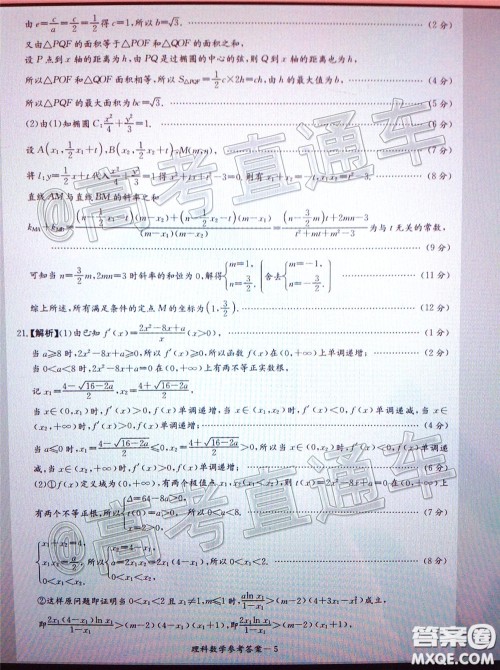 由e=c/a=c/2=1/2得c=1,所以b=√3. (2分)
又由△PQF的面积等于△POF和△QOF的面积之和,
设P点到x轴的距离为h,由PQ是过椭圆的中心的弦,则Q到x轴的距离也为h,
所以△POF和△QOF面积相等,所以S△PQF=1/2c×2h=ch,由h的最大值为b, (4分)
所以△PQF的最大面积为bc=√3. (5分)
(2)由(1)知椭圆C:x²/4+y²/3=1. (6分)
设A(x₁,1/2x₁+t),B(x₂,1/2x₂+t),M(m,n), (7分)
将l:y=1/2x+t代入x²/4+y²/3=1得x²+tx+t²-3=0,则有x₁+x₂=-t,x₁x₂=t²-3. (8分)
直线AM与直线BM的斜率之和
为与t无关的常数,
(9分)
可知当n=3/2m,2mn=3时斜率的和恒为0,解得{m=1,n=3/2.{舍去{m=-1,n=-3/2. (11分)
综上所述,所有满足条件的定点M的坐标为(1,3/2). (12分)
21.【解析】(1)由已知f′(x)=(2x²-8x+a)/x(x>0), (1分)
当a≥8时,2x²-8x+a≥0,所以f′(x)≥0,所以函数f(x)在(0,+∞)上单调递增; (2分)
当0<a<8时,2x²-8x+a=0在(0,+∞)上有两不等正实数根,
记x₁=(4-√(16-2a))/2,x₂=(4+√(16-2a))/2,
当x∈(0,x₁)时,f′(x)>0,f(x)单调递增,当x∈(x₁,x₂)时,f′(x)<0,f(x)单调递减,当x∈
(x₂,+∞)时,f′(x)>0,f(x)单调递增; (4分)
当a≤0时,x₁=(4-√(16-2a))/2≤0,x₂=(4+√(16-2a))/2>0,所以当x∈(0,x₂)时,f′(x)<0,f(x)单调
递减,当x∈(x₂,+∞)时,f′(x)>0,f(x)单调递增; (6分)
(2)①f(x)定义域为(0,+∞),有两个极值点x₁,x₂(x₁<x₂),则t(x)=2x²-8x+a=0在(0,+∞)上
有两个不等正根,所以{Δ=64-8a>0,t(0)=a>0,x=2>0, 所以0<a<8, (7分)
{x₁+x₂=4,x₁x₂=a/2,0<x₁<x₂, 所以{x₂=4-x₁,a=2x₁x₂=2x₁(4-x₁),0<x₁<x₂, 所以0<x₁<2, (8分)
②这样原问题即证明当0<x₁<2且x₁≠1,m≤1时,alnx₁/(1-x₁)>(m-2)(4+3x₁-x₁²)成立,
即证2x₁(4-x₁)lnx₁/(1-x₁)>(m-2)(4-x₁)(x₁+1),即证2x₁lnx₁/(1-x₁)>(m-2)(x₁+1),
理科数学参考答案-5
@高考直通车
@高考直通车
答案圈
MXQE.COM